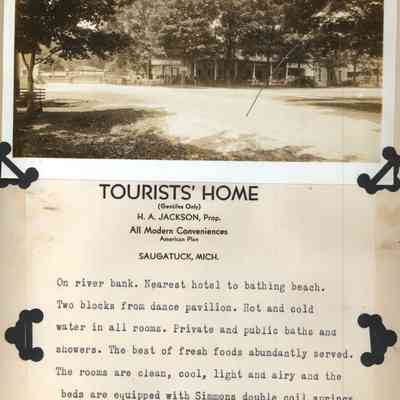 TOURISTS' HOME
(Gentiles Only)
H. A. JACKSON, Prop.
All Modern Conveniences
American Plan
SAUGATUCK, MICH.
On river bank. Nearest hotel to bathing beach.
Two blocks from dance pavilion. Hot and cold
water in all rooms. Private and public baths and
showers. The best of fresh foods abundantly served.
The rooms are clean, cool, light and airy and the
beds are equipped with Simmons double coil springs